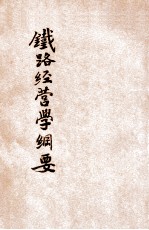 鐵路经营学綱要